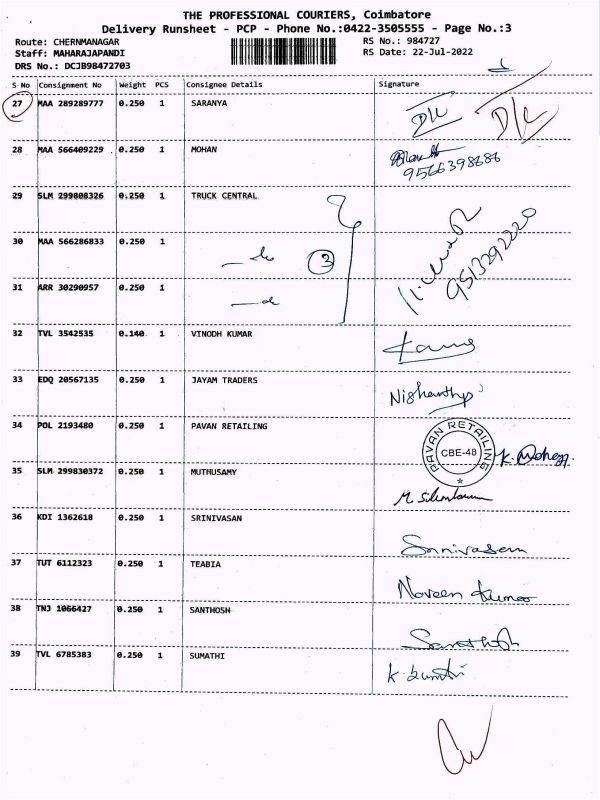 THE PROFESSIONAL COURIERS, Coimbatore
Delivery Runsheet - PCP - Phone No.:0422-3505555 - Page No.:3
Route: CHERNMANAGAR
Staff: MAHARAJAPANDI
DRS No.: DCJB98472703
RS No.: 984727
RS Date: 22-Jul-2022
S No Consignment No Weight PCS Consignee Details Signature
27 MAA 289289777 0.250 1 SARANYA D/L D/L
28 MAA 566409229 0.250 1 MOHAN
9566398686
29 SLM 299808326 0.250 1 TRUCK CENTRAL
30 MAA 566286833 0.250 1 3 9513292220
31 ARR 30290957 0.250 1
32 TVL 3542535 0.140 1 VINODH KUMAR
33 EDQ 20567135 0.250 1 JAYAM TRADERS Nishanthy
34 POL 2193480 0.250 1 PAVAN RETAILING PAVAN RETAILING CBE-48
35 SLM 299830372 0.250 1 MUTHUSAMY
36 KDI 1362618 0.250 1 SRINIVASAN Srinivasan
37 TUT 6112323 0.250 1 TEABIA Naveen Kumar
38 TNJ 1066427 0.250 1 SANTHOSH Santhosh
39 TVL 6785383 0.250 1 SUMATHI